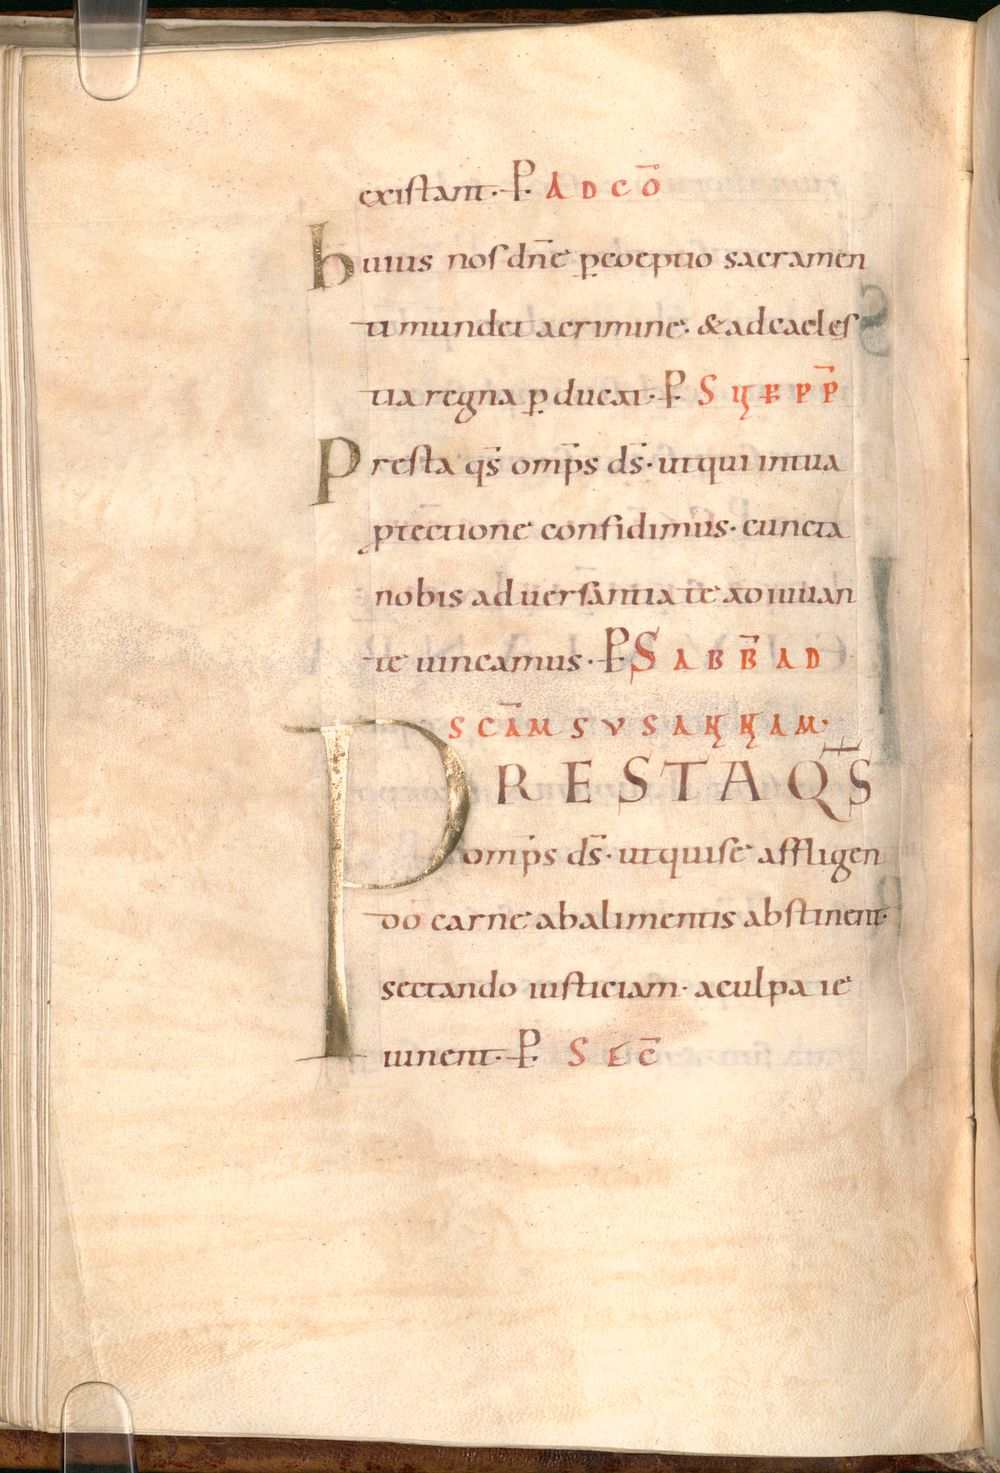 existant · P · AD CŌ
huius nos dn̄e ꝑceptio sacramen
ti mundet a crimine · & ad caeles
tia regna ꝑducat · P · SUP̄ P̄P
Presta qs̄ om̄ps ds̄ · ut qui in tua
ꝓtectione confidimus · cuncta
nobis aduersantia te adiuuan
te uincamus · P · SABB̄ AD
SCĀM SUSANNAM ·
PRESTA QS̄
om̄ps ds̄ · ut qui se affligen
do carne ab alimentis abstinent ·
sectando iusticiam · a culpa ie
iunent · P · SEC̄